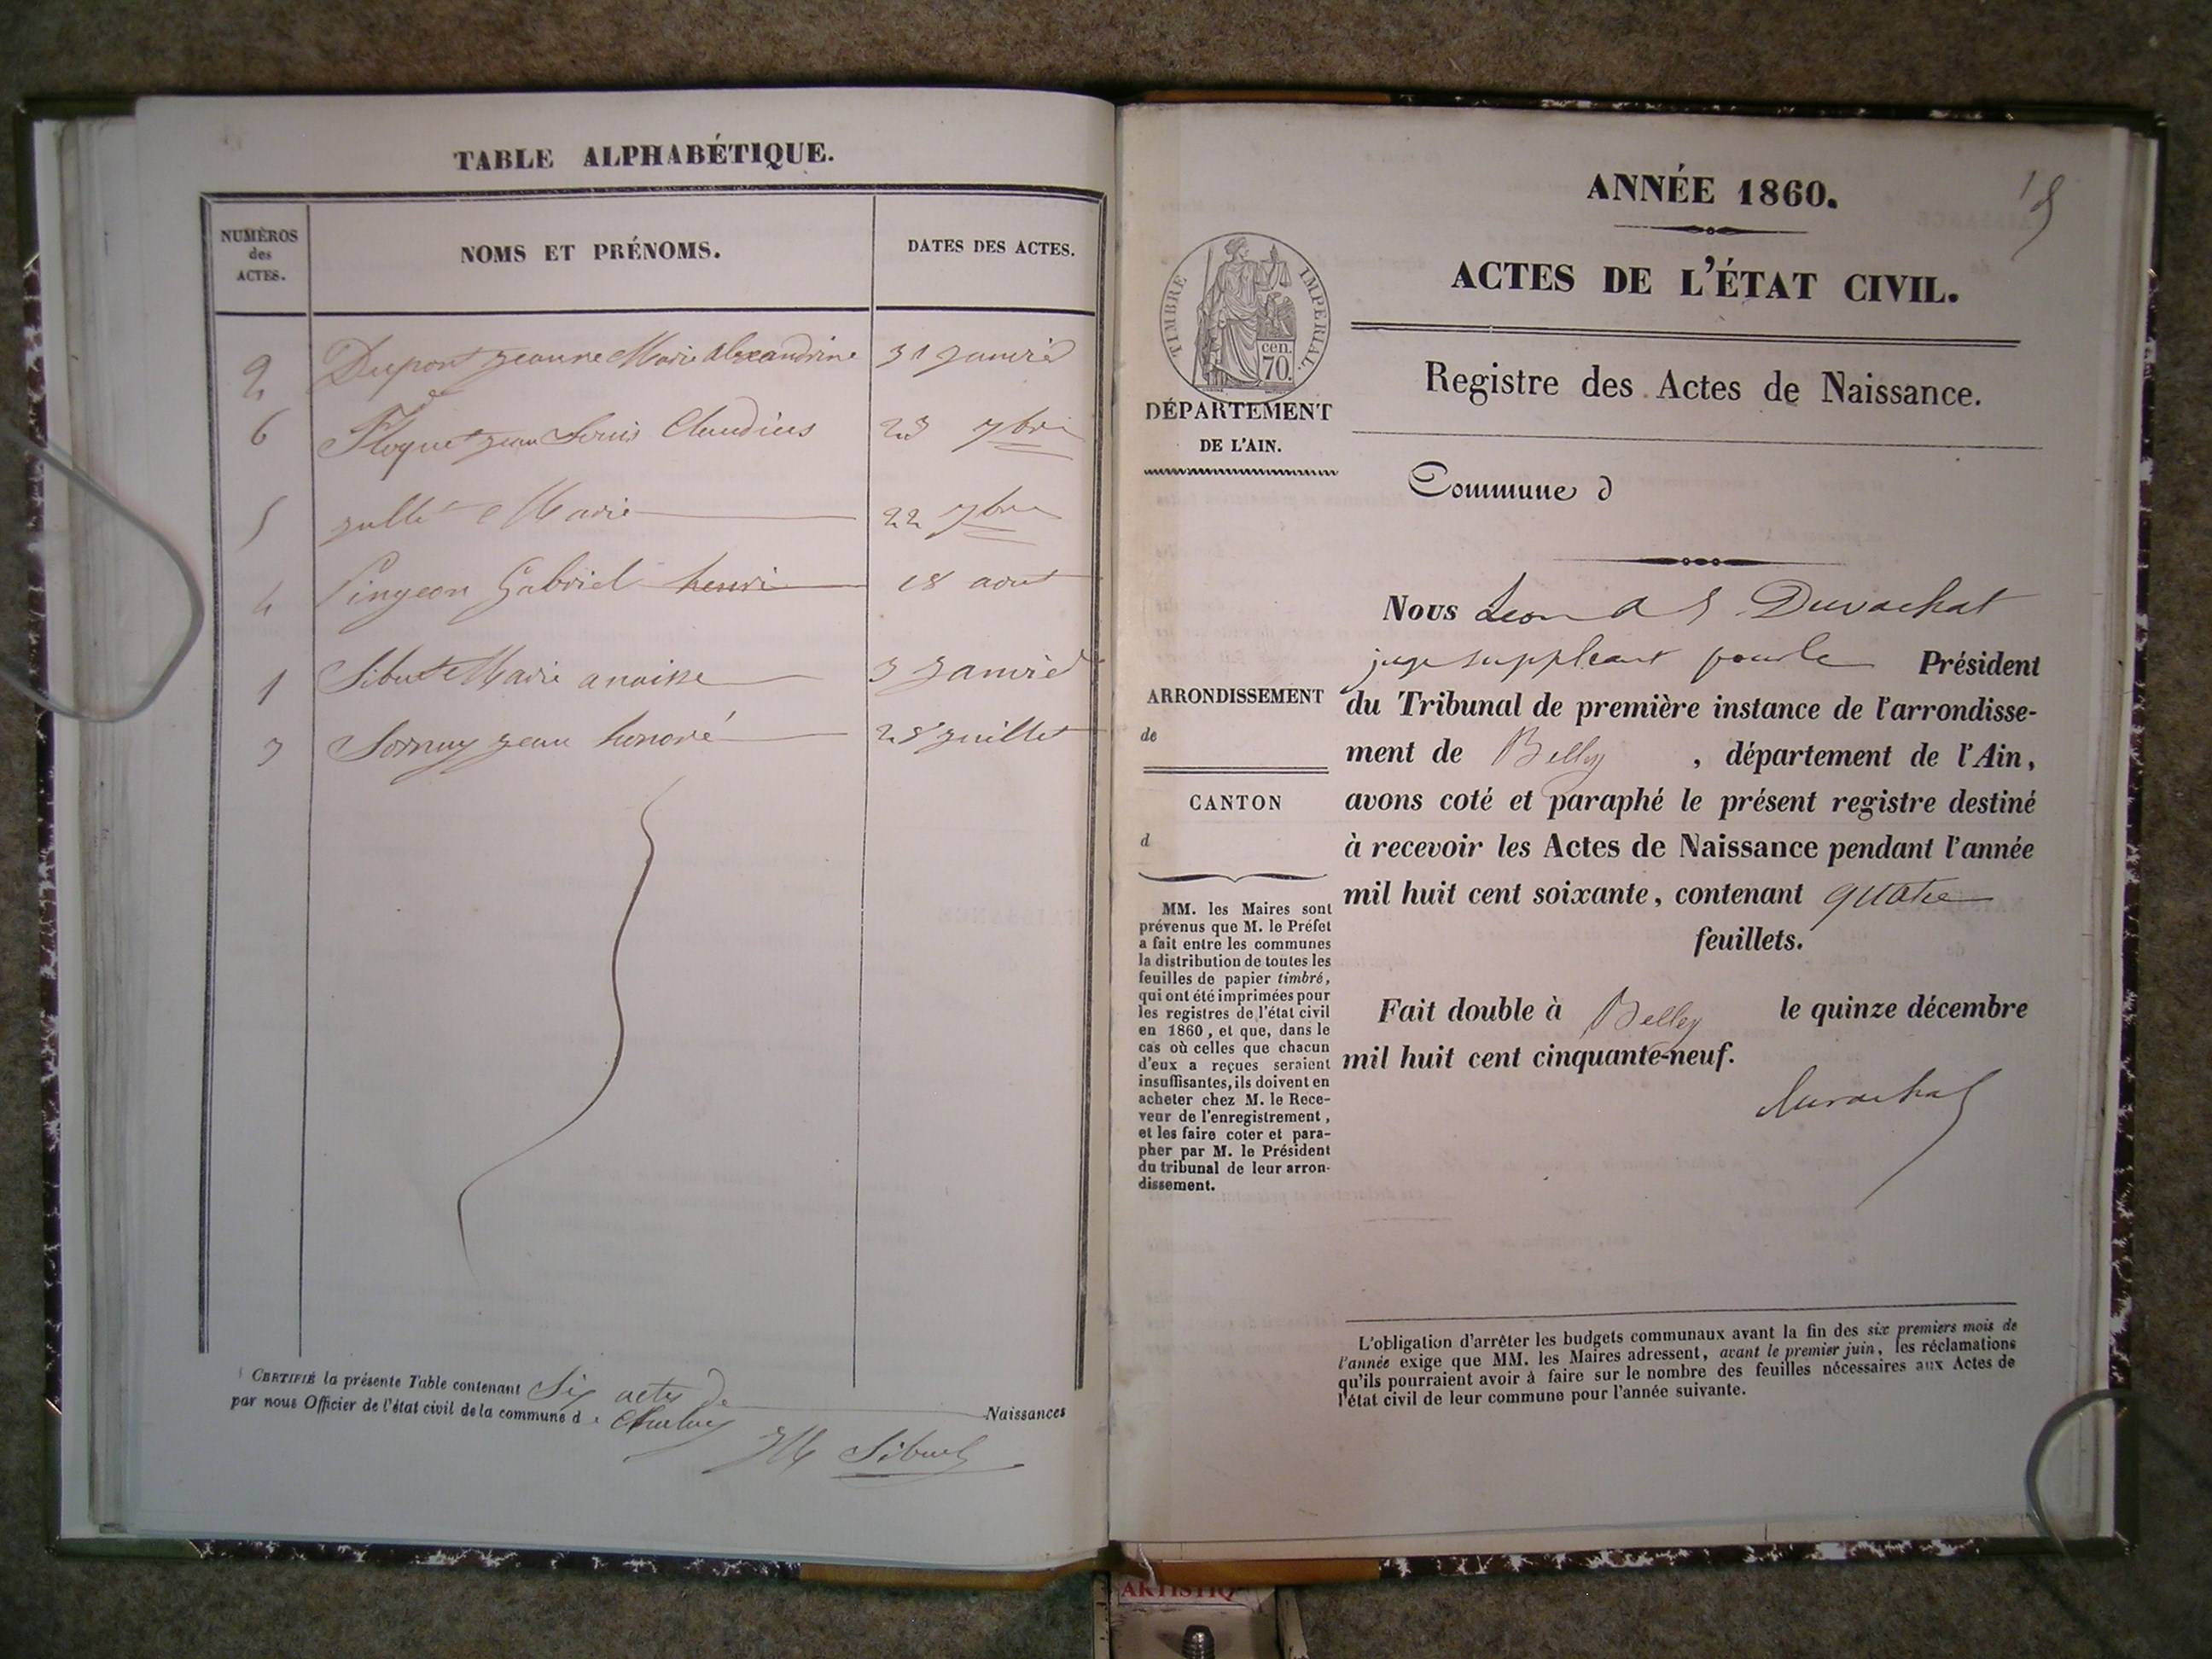 TABLE ALPHABÉTIQUE.
NUMÉROS
des
ACTES.
NOMS ET PRÉNOMS.
DATES DES ACTES.
2 Dupont jeanne Marie Alexandrine 31 janvier
6 Floquet jean Louis Claudius 23 7bre
5 Marie 22 7bre
4 Pingeon Gabriel henri 18 aout
1 Sibuet Marie 3 janvier
3 jean honoré 28 juillet
CERTIFIÉ la présente Table contenant Six actes de
Naissances
par nous Officier de l'état civil de la commune d
Sibuet
ANNÉE 1860.
ACTES DE L'ÉTAT CIVIL.
Registre des Actes de Naissance.
TIMBRE IMPÉRIAL.
cen.
70.
DÉPARTEMENT
DE L'AIN.
Commune d
ARRONDISSEMENT
de
CANTON
d
MM. les Maires sont
prévenus que M. le Préfet
a fait entre les communes
la distribution de toutes les
feuilles de papier timbré,
qui ont été imprimées pour
les registres de l'état civil
en 1860, et que, dans le
cas où celles que chacun
d'eux a reçues seraient
insuffisantes, ils doivent en
acheter chez M. le Rece-
veur de l'enregistrement,
et les faire coter et para-
pher par M. le Président
du tribunal de leur arron-
dissement.
Nous Leon Duvachat
juge suppleant pour le Président
du Tribunal de première instance de l'arrondisse-
ment de Belley, département de l'Ain,
avons coté et paraphé le présent registre destiné
à recevoir les Actes de Naissance pendant l'année
mil huit cent soixante, contenant quatre
feuillets.
Fait double à Belley le quinze décembre
mil huit cent cinquante-neuf.
Duvachat
L'obligation d'arrêter les budgets communaux avant la fin des six premiers mois de
l'année exige que MM. les Maires adressent, avant le premier juin, les réclamations
qu'ils pourraient avoir à faire sur le nombre des feuilles nécessaires aux Actes de
l'état civil de leur commune pour l'année suivante.
ARTISTIQ